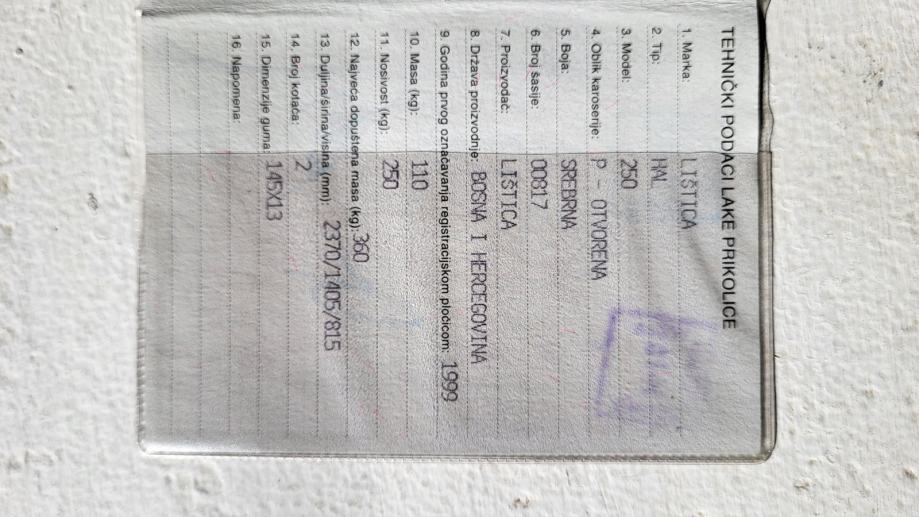 TEHNIČKI PODACI LAKE PRIKOLICE
1. Marka: LIŠTICA
2. Tip: HAL
3. Model: 250
4. Oblik karoserije: P - OTVORENA
5. Boja: SREBRNA
6. Broj šasije: 00817
7. Proizvodač: LIŠTICA
8. Država proizvodnje: BOSNA I HERCEGOVINA
9. Godina prvog označavanja registracijskom pločicom: 1999
10. Masa (kg): 110
11. Nosivost (kg): 250
12. Najveća dopuštena masa (kg): 360
13. Duljina/širina/visina (mm): 2370/1405/815
14. Broj kotača: 2
15. Dimenzije guma: 145X13
16. Napomena: